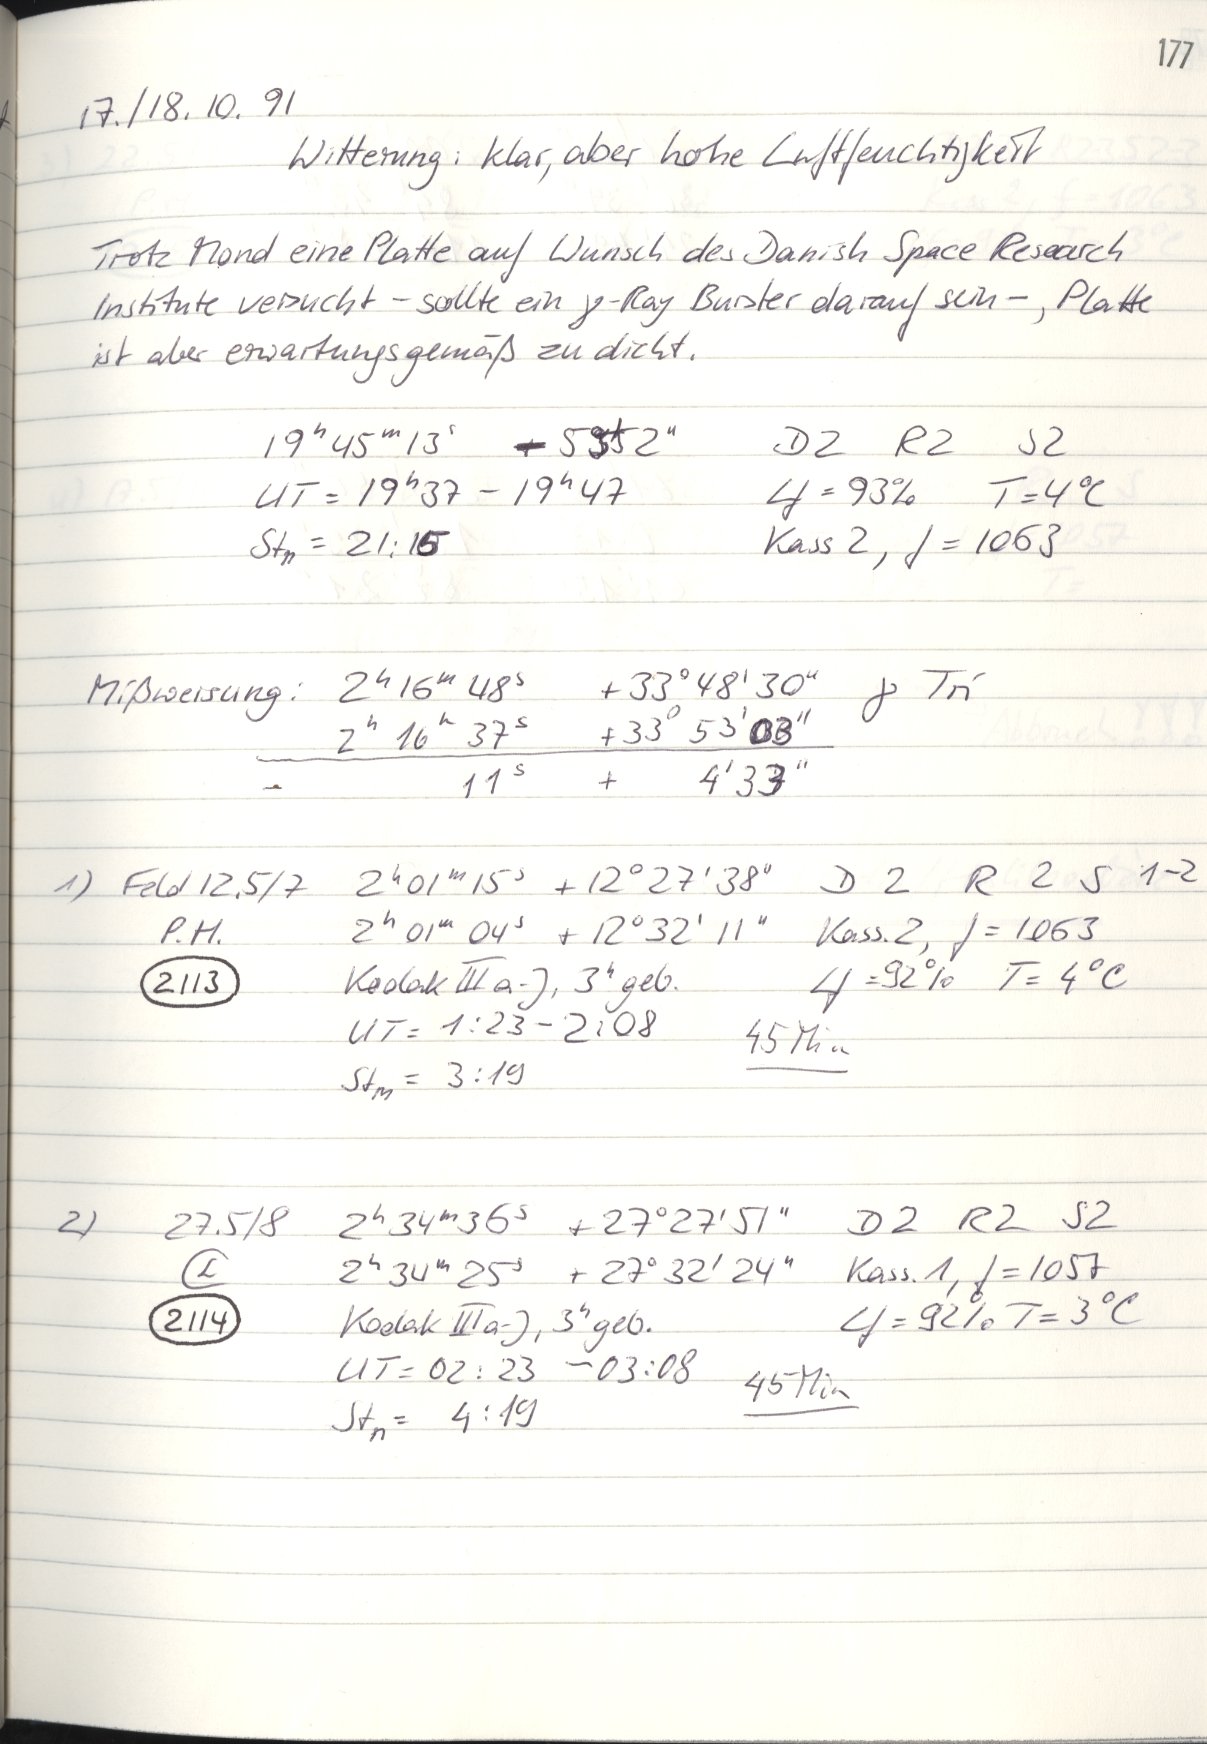 177
17./18. 10. 91
Witterung: klar, aber hohe Luftfeuchtigkeit
Trotz Mond eine Platte auf Wunsch des Danish Space Research
Institute versucht – sollte ein γ-Ray Burster darauf sein –, Platte
ist aber erwartungsgemäß zu dicht.
19ʰ45ᵐ13ˢ D2 R2 S2
UT = 19ʰ37 – 19ʰ47 Lf = 93% T=4°C
Stₙ = 21:15 Kass 2, f = 1063
Mißweisung: 2ʰ16ᵐ48ˢ +33°48'30" γ Tri
2ʰ 16ʰ 37ˢ +33° 53'03"
- 11ˢ + 4'33"
1) Feld 12.5/7 2ʰ01ᵐ15ˢ +12°27'38" D 2 R 2 S 1-2
P.H. 2ʰ01ᵐ04ˢ +12°32'11" Kass. 2, f = 1063
2113 Kodak IIIa-J, 3ʰ geb. Lf = 92% T= 4°C
UT = 1:23 – 2:08 45 Min
Stₘ = 3:19
2) 27.5/8 2ʰ34ᵐ36ˢ +27°27'51" D2 R2 S2
2ʰ34ᵐ25ˢ +27°32'24" Kass. 1, f = 1057
2114 Kodak IIIa-J, 3ʰ geb. Lf = 92% T= 3°C
UT= 02:23 – 03:08 45 Min
Stₙ = 4:19